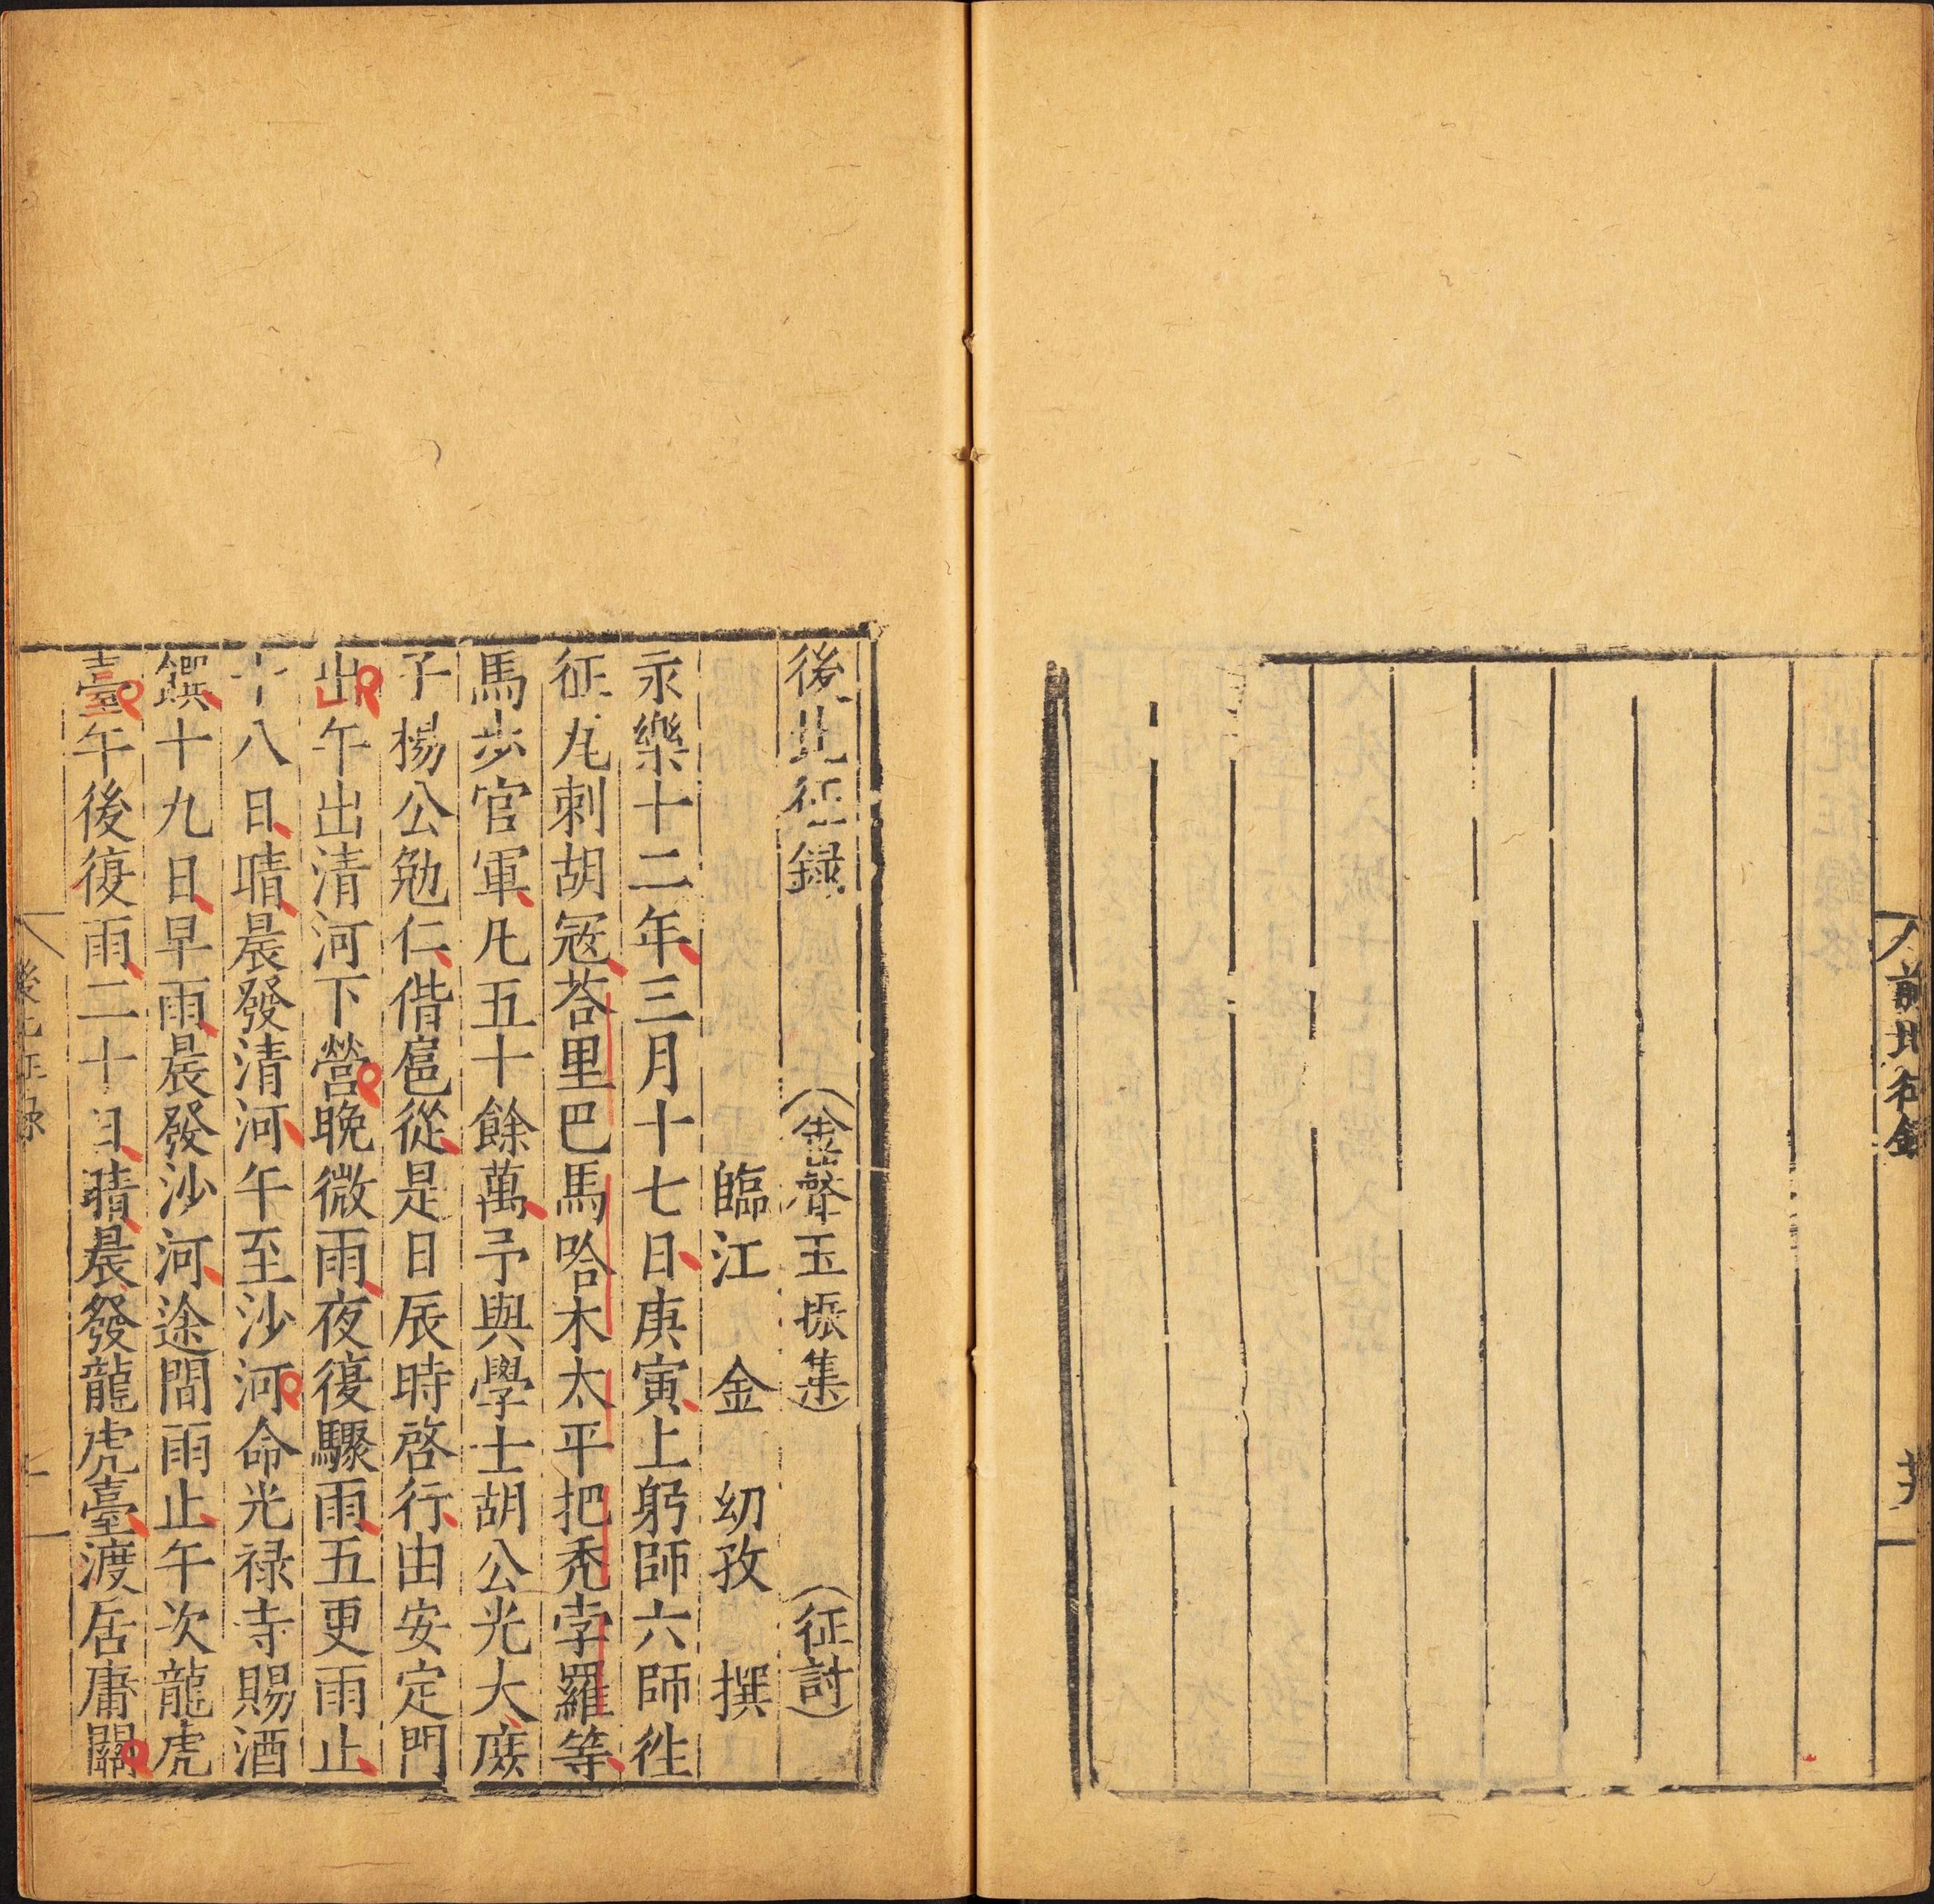 前北征錄
後北征録 （金聲玉振集）（征討）
臨江 金 幼孜 撰
永樂十二年三月十七日庚寅上躬師六師徃
征瓦剌胡冦荅里巴馬哈木太平把禿孛羅等
馬步官軍凡五十餘萬予與學士胡公光大庻
子楊公勉仁偕扈從是日辰時啓行由安定門
出午出清河下營晚微雨夜復驟雨五更雨止
十八日晴晨發清河午至沙河命光禄寺賜酒
饌十九日早雨晨發沙河途間雨止午次龍虎
臺午後復雨二十日晴晨發龍虎臺渡居庸關
後北征錄